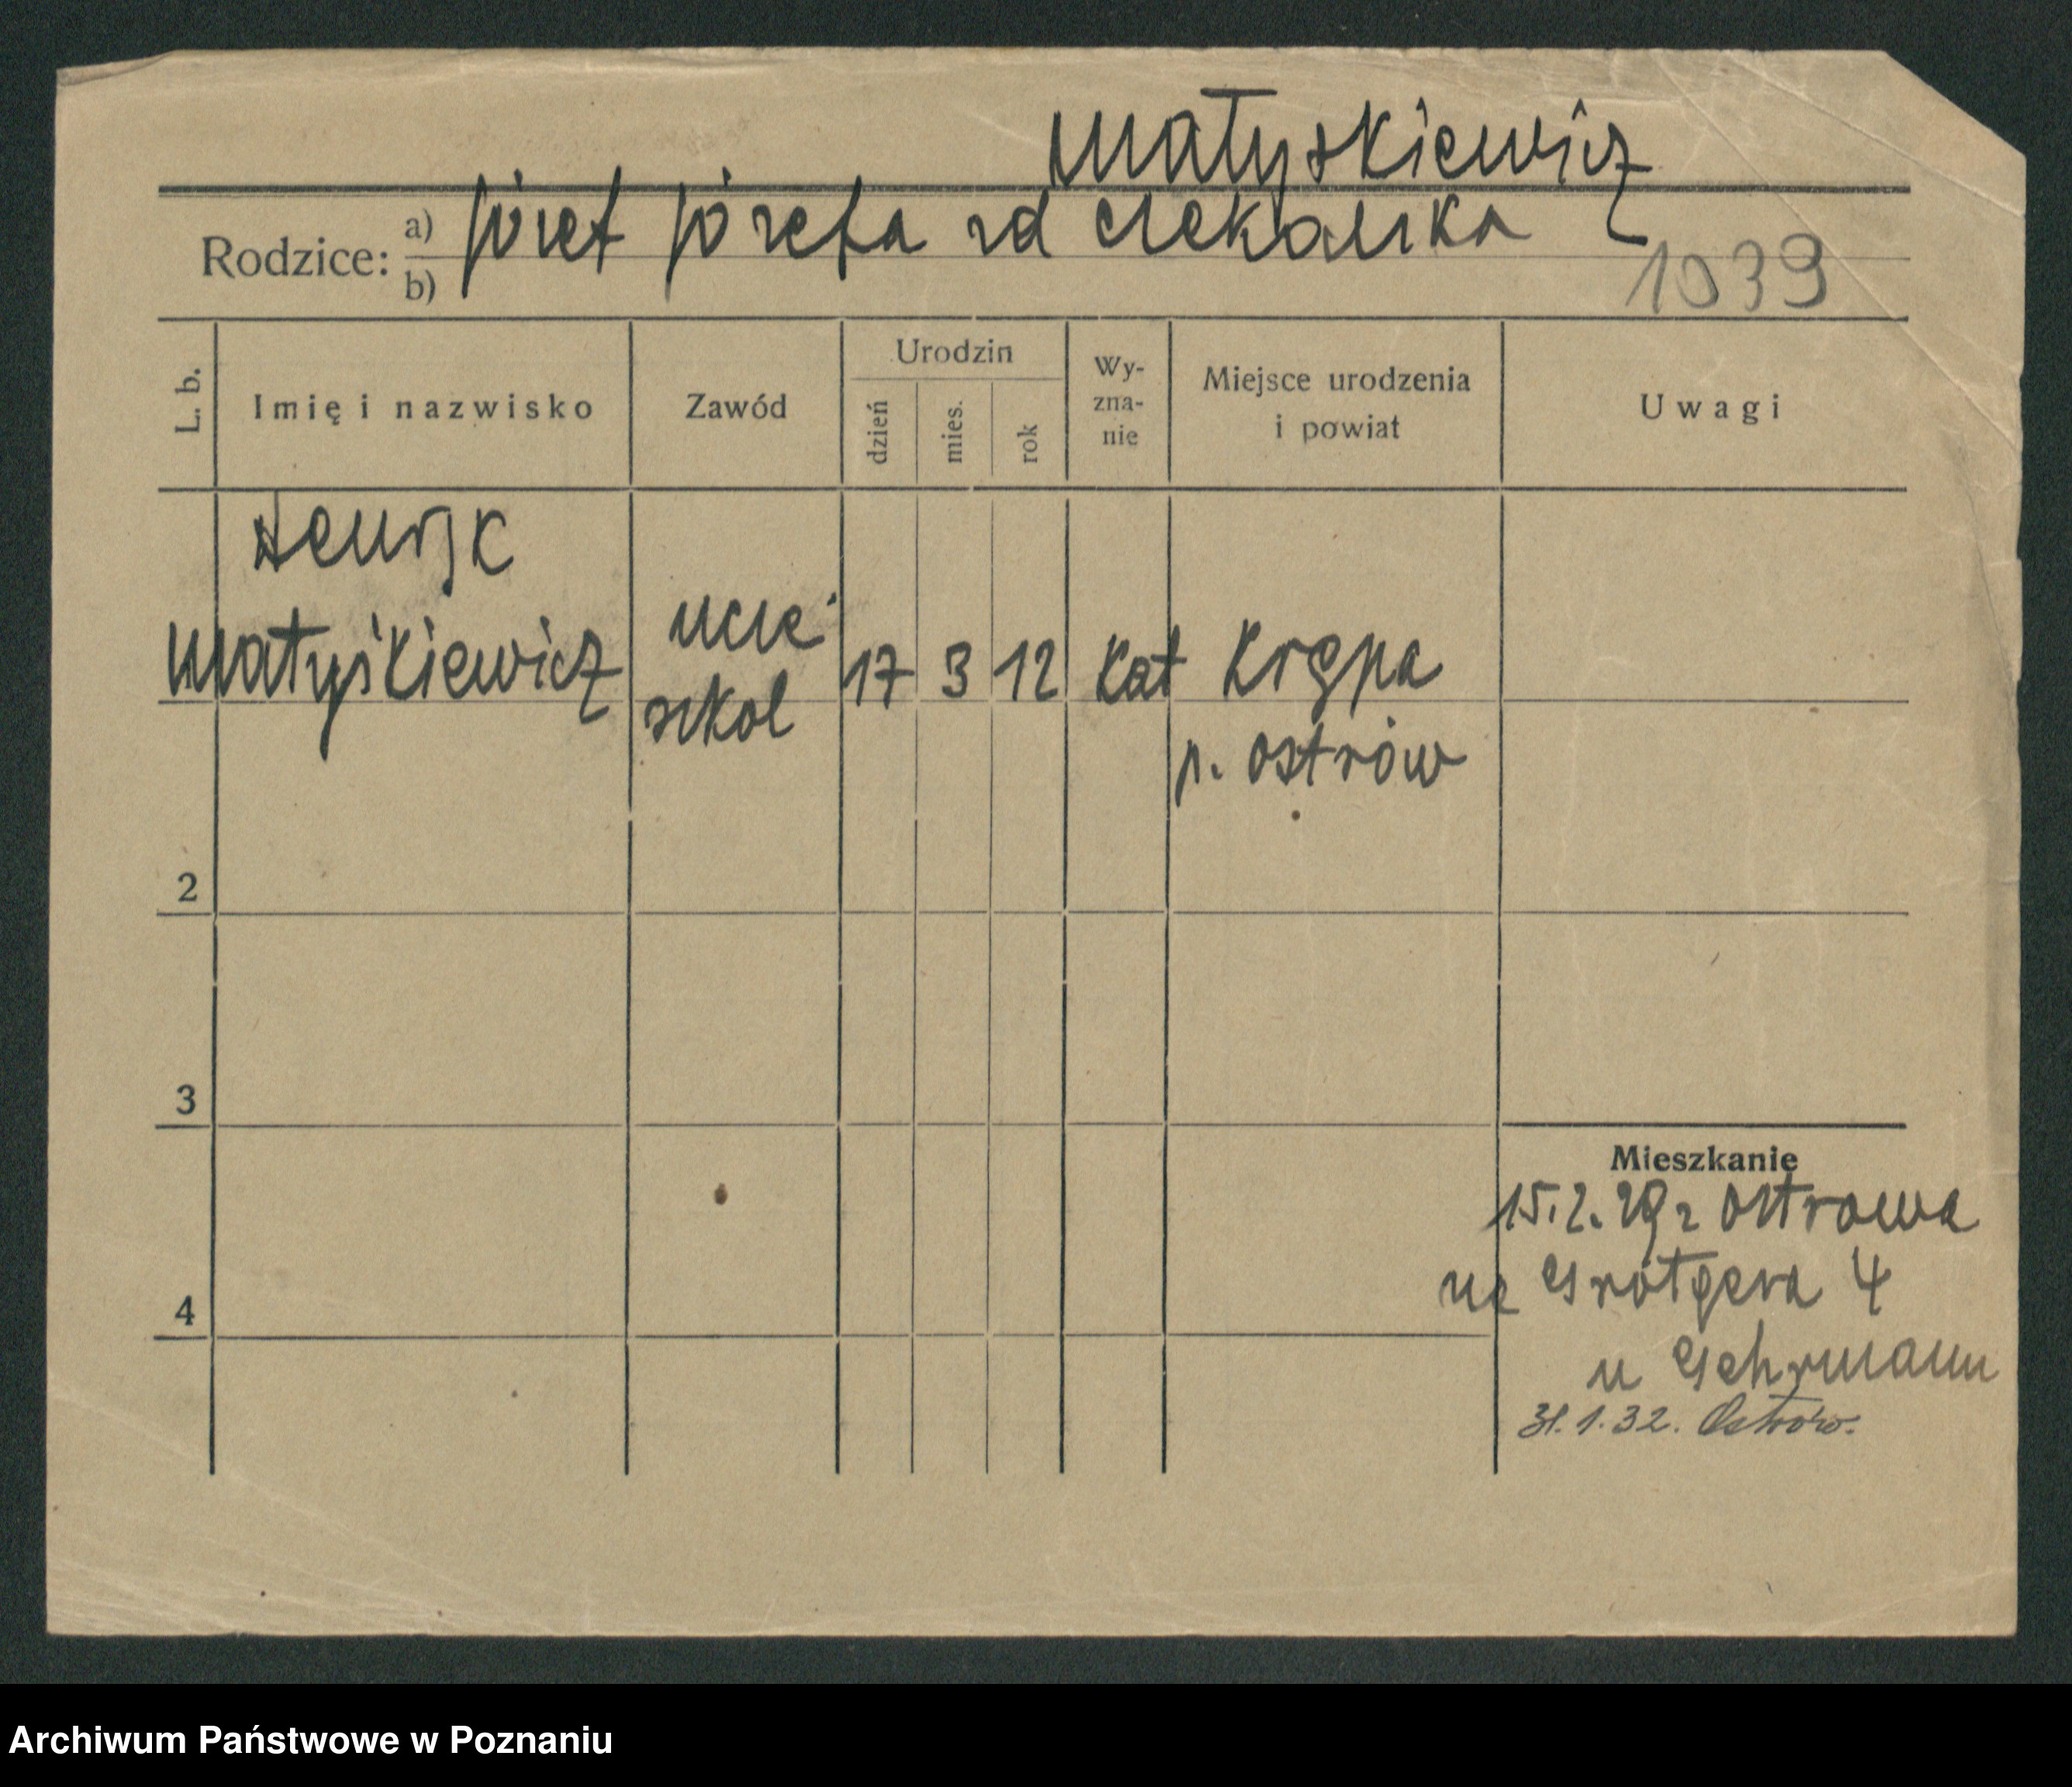 Matyskiewicz
Rodzice: a) Józef Józefa zd Czekalska
b)
1039
L. b.
Imię i nazwisko
Zawód
Urodzin
dzień
mies.
rok
Wy-
zna-
nie
Miejsce urodzenia
i powiat
Uwagi
Henryk
Matyśkiewicz
ucze
szkol
17 3 12 kat Krępa
p. Ostrów
2
3
4
Mieszkanie
15.2.29 z Ostrowa
na Grötgera 4
u Gehrmann
31.1.32. Ostrów.
Archiwum Państwowe w Poznaniu